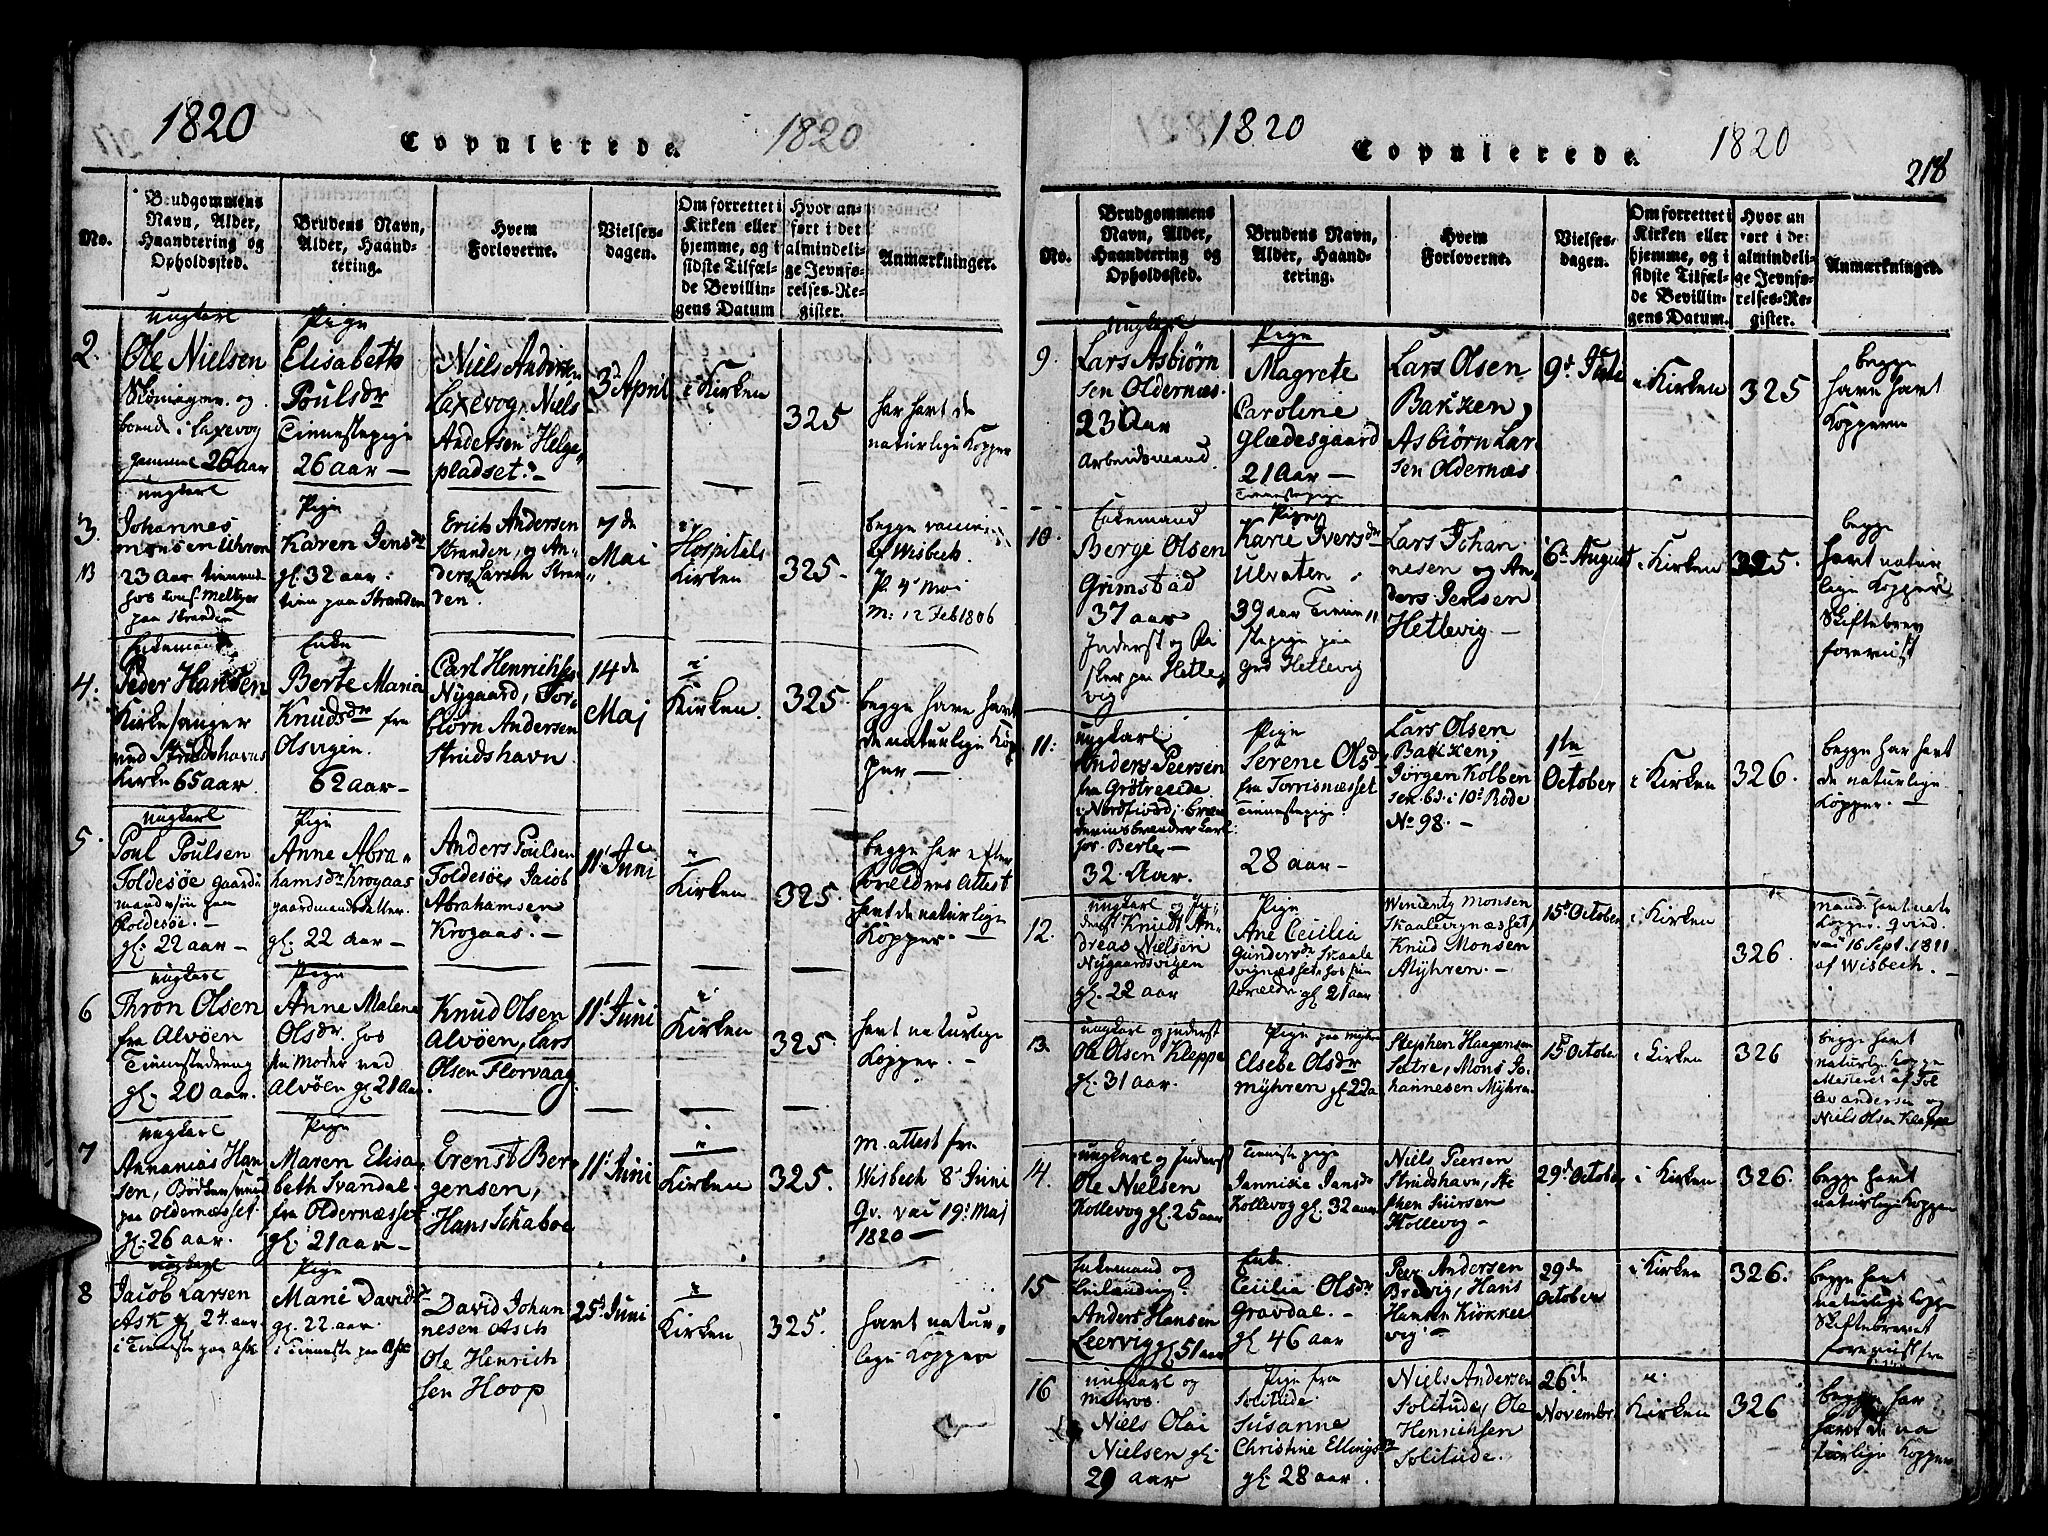 1820
Copulerede.
1820
No.
Brudgommens
Navn, Alder,
Haandtering og
Opholdssted.
Brudens Navn,
Alder, Haand-
tering.
Hvem
Forloverne.
Vielses-
dagen.
Om forrettet i
Kirken eller
hjemme, og i
sidste Tilfæl-
de Bevillin-
gens Datum
Hvor an-
ført i det
almindeli-
ge Jevnfø-
relses-Re-
gister.
Anmærkninger.
2.
ungkarl
Ole Nielsen
boende i Laxevog
gammel 26 aar
Pige
Elisabeth
Poulsdr
Tienestepige
26 aar —
Niels Andersen
Laxevog, Niels
Andersen Helge
pladset. —
3d April
i Kirken
325
har havt de
naturlige Kopper
3.
NB
ungkarl
Johannes
monsen Uhren
23 Aar tienende
hos Meltzer
paa Stranden
Pige
Karen Jensdr
gl. 32 aar:
tien paa Stranden
Erich Andersen
Stranden, og An-
ders Larsen Stran-
den.
7de
Mai
i
Hospitels
Kirken
325.
begge vaccine
af Wisbech
P. 4 Mai
M: 12 Feb 1806
4.
Enkemand
Peder Hansen
Kirkesanger
ved Strudshavns
Kirke 65 aar
Enke
Berte Maria
Knudsdr fra
Olsvigen.
62 aar —
Carl Henrichsen
Nygaard, Tor-
biørn Andersen
Strudshavn
14de
Maj
i
Kirken.
325
begge have havt
de naturlige Kop
per —
5.
ungkarl
Poul Poulsen
Toldesøe gaard
mandssøn paa
Toldesøe.
gl: 22 aar —
Pige
Anne Abra-
hamsdr Krogaas
gaardmandsdatter.
gl. 22 Aar —
Anders Poulsen
Toldesøe, Jacob
Abrahamsen
Krogaas. —
11t Juni
i
Kirken
325.
begge har efter
Forældres Attest
havt de naturlige
Kopper. —
6
ungkarl
Thron Olsen
fra Alvøen
Tienestedreng
gl. 20 aar.
Pige
Anne Malene
Olsdr. hos
sin Moder ved
Alvøen gl 21 Aar
Knud Olsen
Alvøen, Lars
Olsen Florvaag.
11t Juni
i
Kirken
325
havt naturlige
Kopper. —
7
ungkarl
Annanias Han
sen, Bødkersvend
paa Oldernæsset.
gl. 26 aar.
Pige
Maren Elisa
beth Svandal
fra Oldernæsset
gl. 21 aar —
Erenst Ber
gensen,
Hans Schaboe
11t Juni
i
Kirken
325.
M. attest fra
Wisbech 8d Juni
Qv. vac 19d Maj
1820 —
8
ungkarl
Jacob Larsen
Ask gl 24 aar
i Tieneste paa Ask
Pige
Marie Davidsdr
gl. 22 aar.
i Tieneste paa Ask
David Johan
nesen Asch
Ole Henrich
sen Hoop
25d Juni
i
Kirken
325.
havt natur-
lige Kopper
1820
Copulerede.
1820
218
No.
Brudgommens
Navn, Alder,
Haandtering og
Opholdssted.
Brudens Navn,
Alder, Haand-
tering.
Hvem
Forloverne.
Vielses-
dagen.
Om forrettet i
Kirken eller
hjemme, og i
sidste Tilfæl-
de Bevillin-
gens Datum.
Hvor an
ført i det
almindeli-
ge Jevnfø-
relses-Re-
gister.
Anmærkninger.
9.
ungkarl
Lars Asbiørn
sen Oldernæs.
23 Aar
Arbeidsmand.
Pige
Magrete
Caroline
Glædesgaard
21 Aar —
Tienestepige
Lars Olsen
Bakken,
Asbiørn Lar
sen Oldernæs
9d Juli
i Kirken
325
begge
have havt
Kopperne
10.
Enkemand
Berge Olsen
Grimstad
37 aar
Inderst og Fi
sker paa Hetle
vig
Pige
Karie Iversdr
Ulvaten
39 aar Tiene
stepige paa
grd Hetlevig
Lars Johan
nesen og An
ders Jensen
Hetlevig —
6te August
i Kirken
325.
begge
havt natur
lige Kopper
Skiftebrev
forevist
11:
ungkarl
Anders Peersen
fra Grøtreeide
i Nordfiord; Bræn
deviinsbrænder karl
hos Berle —
32 Aar.
Pige
Serene Olsdr
fra Torrisnæsset
Tienestepige.
28 aar —
Lars Olsen
Bakken,
Jørgen Kolben
sen. bd. i 10d Rode
No 98. —
1te
October
i Kirken
326.
begge har havt
de naturlige
Kopper. —
12.
ungkarl og In-
derst Knudt An-
dreas Nielsen
Nygaardsvigen
gl. 22 aar
Pige
Ane Cecilia
Gundersdr Skaale
vignæsset hos sine
forældre. gl. 21 aar
Wincentz Monsen
Skaalevignæsset,
Knud Monsen
Myhren. —
15d October
i Kirken
326.
mand: havt nat.
Kopper. Qvind.
vac 16 Sept. 1811
af Wisbech. —
13.
ungkarl og inderst
Ole Olsen Kleppe
gl. 31 aar.
Pige paa Myhre
Elsebe Olsdr
myhren gl 22 a
Stephen Haagensen
Sætre, Mons Jo-
hannesen Myhren.
15d October
i Kirken
326
begge havt
naturlige Kopper
attesteret af Tol
lev andersen og
Niels Olsen Kleppe
14.
ungkarl og Inderst
Ole Nielsen
Kollevog gl. 25 aar
Tieneste pige
Jannicke Jansdr
Kollevog gl. 32 aar
Niels Peersen
Strudshavn, Ste
phen Siursen
Kollevig —
29d October
i Kirken
326.
begge havt
naturlige Kopper
15
Enkemand og
Anders Hansen
Leervig gl 51 aar
Enke
Cecilia Olsdr
Gravdal. —
gl 46 aar
Peer Andersen
Bredvig, Hans
Hansen Kiøkke
vig —
29de
October
i Kirken
326.
begge havt
naturlige Kopper
Skiftebrevet
forevist fra
16
ungkarl og
matros.
Niels Olai
Nielsen gl:
29 aar
Pige fra
Solitude
Susanne
Christine Ellingsdr
gl. 28 aar.
Niels Andersen
Solitude, Ole
Henrichsen
Solitude.
26de
Novembr.
i
Kirken
326
begge har
havt de na
turlige Kopper